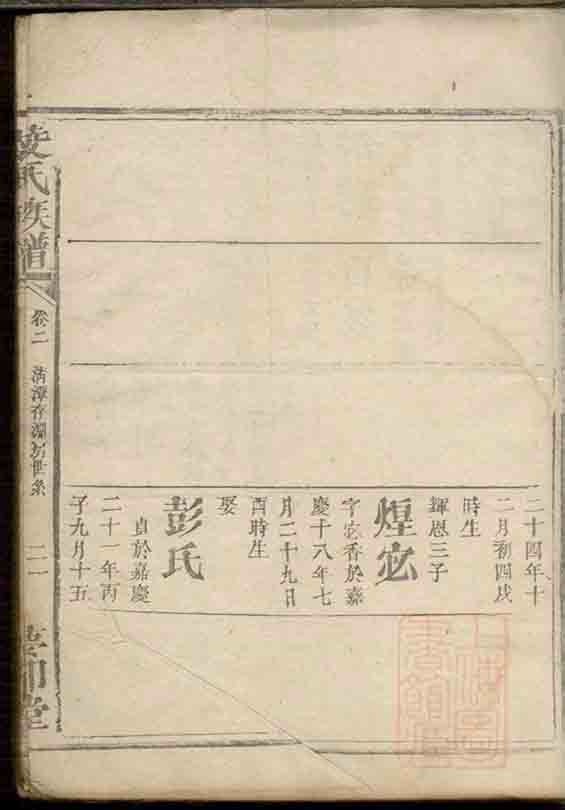 二十四年十
二月初四戌
時生
輝恩三子
煌宓
字宓香於嘉
慶十八年七
月二十九日
酉時生
娶
彭氏
貞於嘉慶
二十一年丙
子九月十五
氏族譜
卷二
清潭存淵房世系
堂